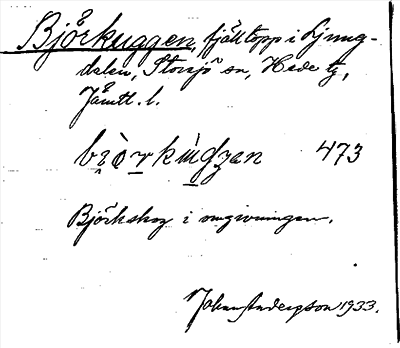 Björkuggen, fjälltopp i Ljung-
dalen, Storsjö sn, Hede tg,
Jämtl. l.
473
Björkskog i omgivningen.
Johan Andersson 1933.